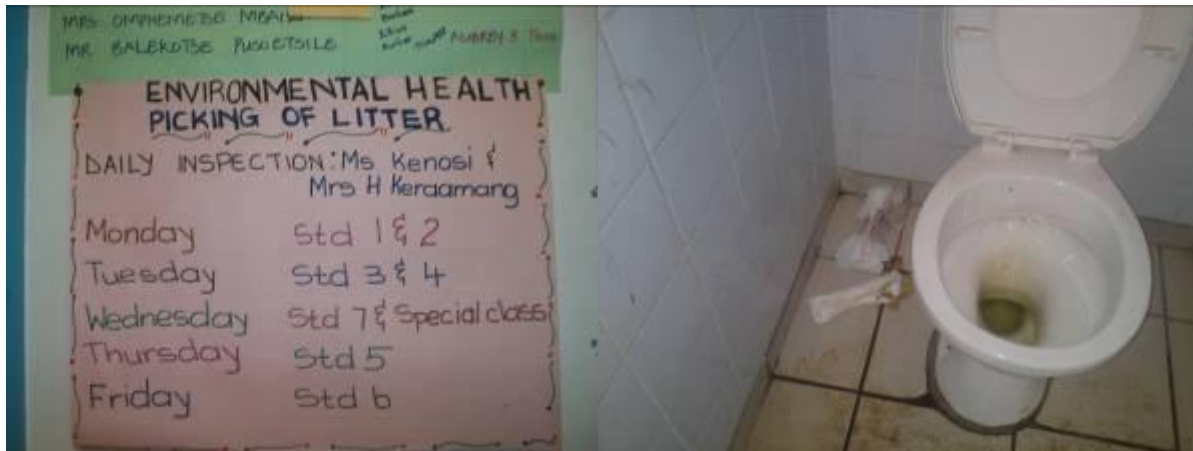 MRS OMPHEMETSE
MR BALEKOTSE PUSOETSILE
ENVIRONMENTAL HEALTH
PICKING OF LITTER
DAILY INSPECTION: Ms Kenosi &
Mrs H Keraamang
Monday Std 1 & 2
Tuesday Std 3 & 4
Wednesday Std 7 & Special class
Thursday Std 5
Friday Std 6